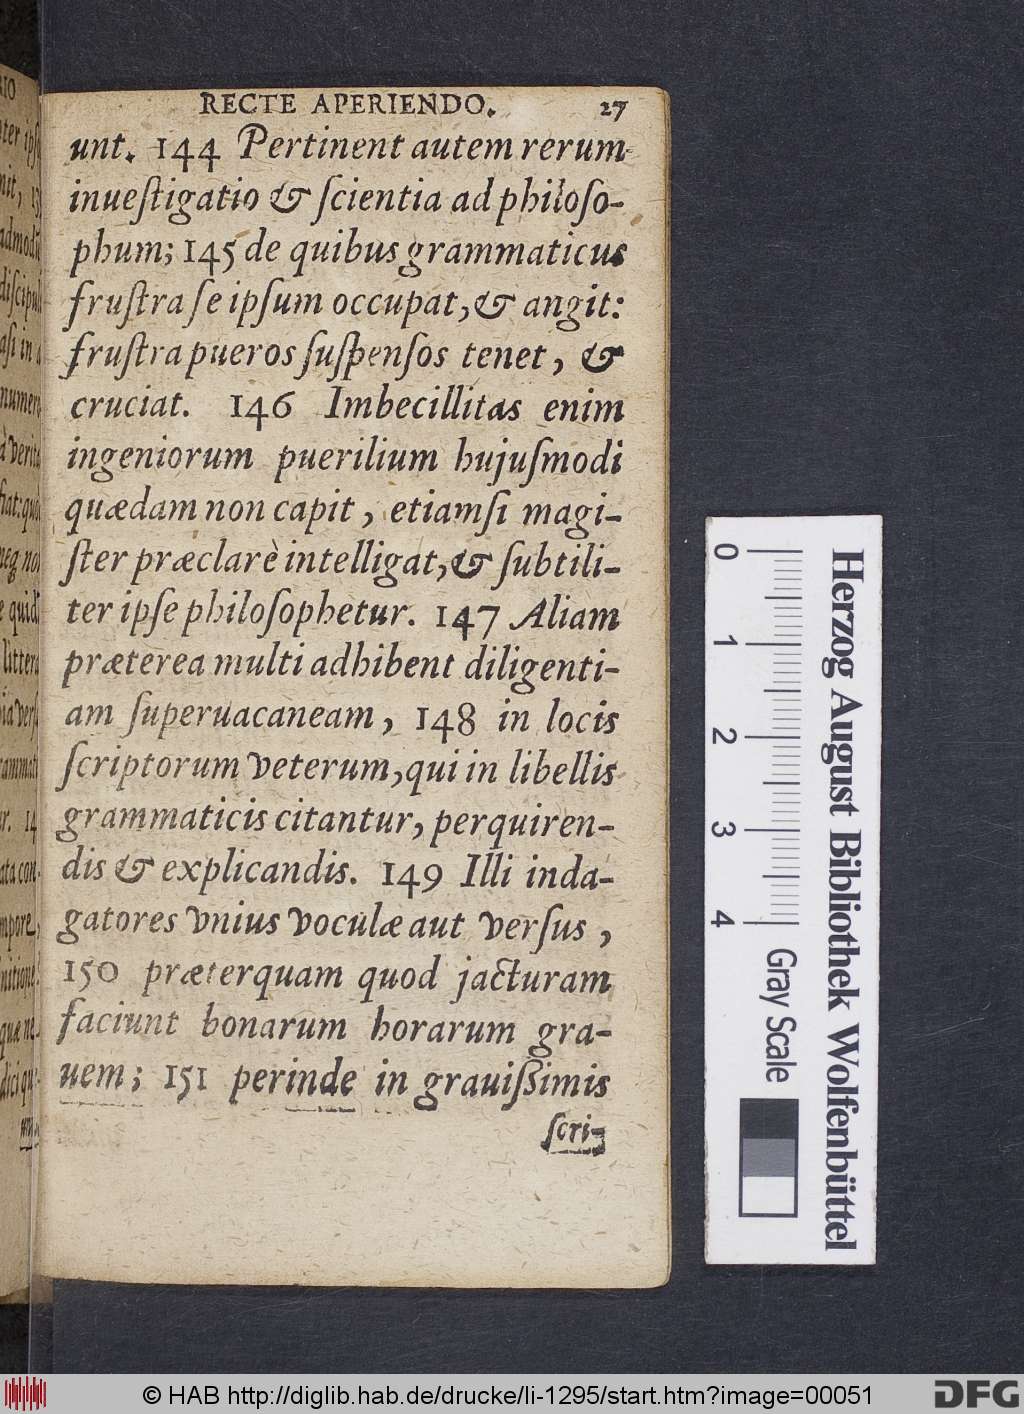 RECTE APERIENDO. 27
unt. 144 Pertinent autem rerum
inueſtigatio & ſcientia ad philoſo-
phum; 145 de quibus grammaticus
fruſtra ſe ipſum occupat, & angit:
fruſtra pueros ſuſpenſos tenet, &
cruciat. 146 Imbecillitas enim
ingeniorum puerilium hujuſmodi
quædam non capit, etiamſi magi-
ſter præclarè intelligat, & ſubtili-
ter ipſe philoſophetur. 147 Aliam
præterea multi adhibent diligenti-
am ſuperuacaneam, 148 in locis
ſcriptorum veterum, qui in libellis
grammaticis citantur, perquiren-
dis & explicandis. 149 Illi inda-
gatores vnius voculæ aut verſus,
150 præterquam quod jacturam
faciunt bonarum horarum gra-
uem; 151 perinde in grauiſsimis
ſcri-
Herzog August Bibliothek Wolfenbüttel
0 1 2 3 4 Gray Scale
© HAB http://diglib.hab.de/drucke/li-1295/start.htm?image=00051
DFG